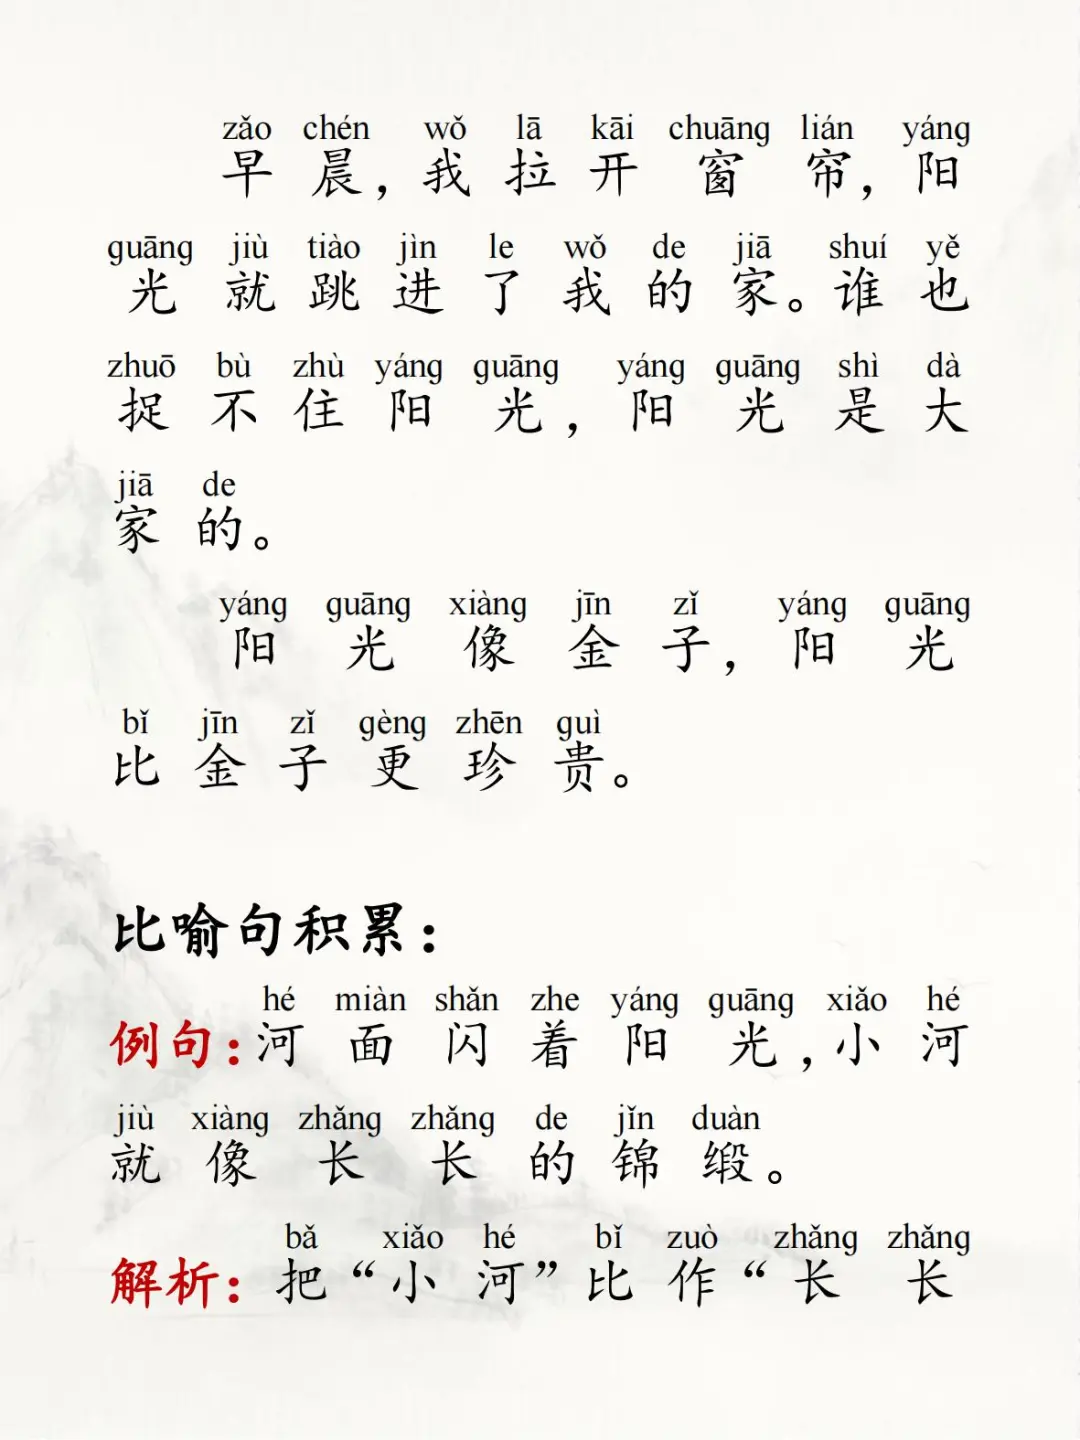 zǎo chén wǒ lā kāi chuāng lián yáng
早晨，我拉开窗帘，阳
guāng jiù tiào jìn le wǒ de jiā shuí yě
光就跳进了我的家。谁也
zhuō bù zhù yáng guāng yáng guāng shì dà
捉不住阳光，阳光是大
jiā de
家的。
yáng guāng xiàng jīn zǐ yáng guāng
阳光像金子，阳光
bǐ jīn zǐ gèng zhēn guì
比金子更珍贵。
比喻句积累：
hé miàn shǎn zhe yáng guāng xiǎo hé
例句：河面闪着阳光，小河
jiù xiàng zhǎng zhǎng de jǐn duàn
就像长长的锦缎。
bǎ xiǎo hé bǐ zuò zhǎng zhǎng
解析：把“小河”比作“长长